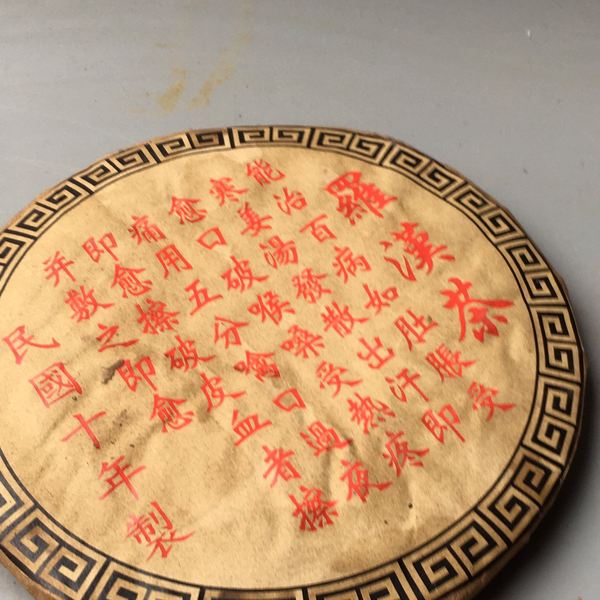 羅漢茶
能治百病如肚脹受
寒姜湯發散出汗即
愈口破喉嗓受熱疼
痛用五分噙口過夜
即愈擦破皮血者擦
并敷之即愈
民國十年製